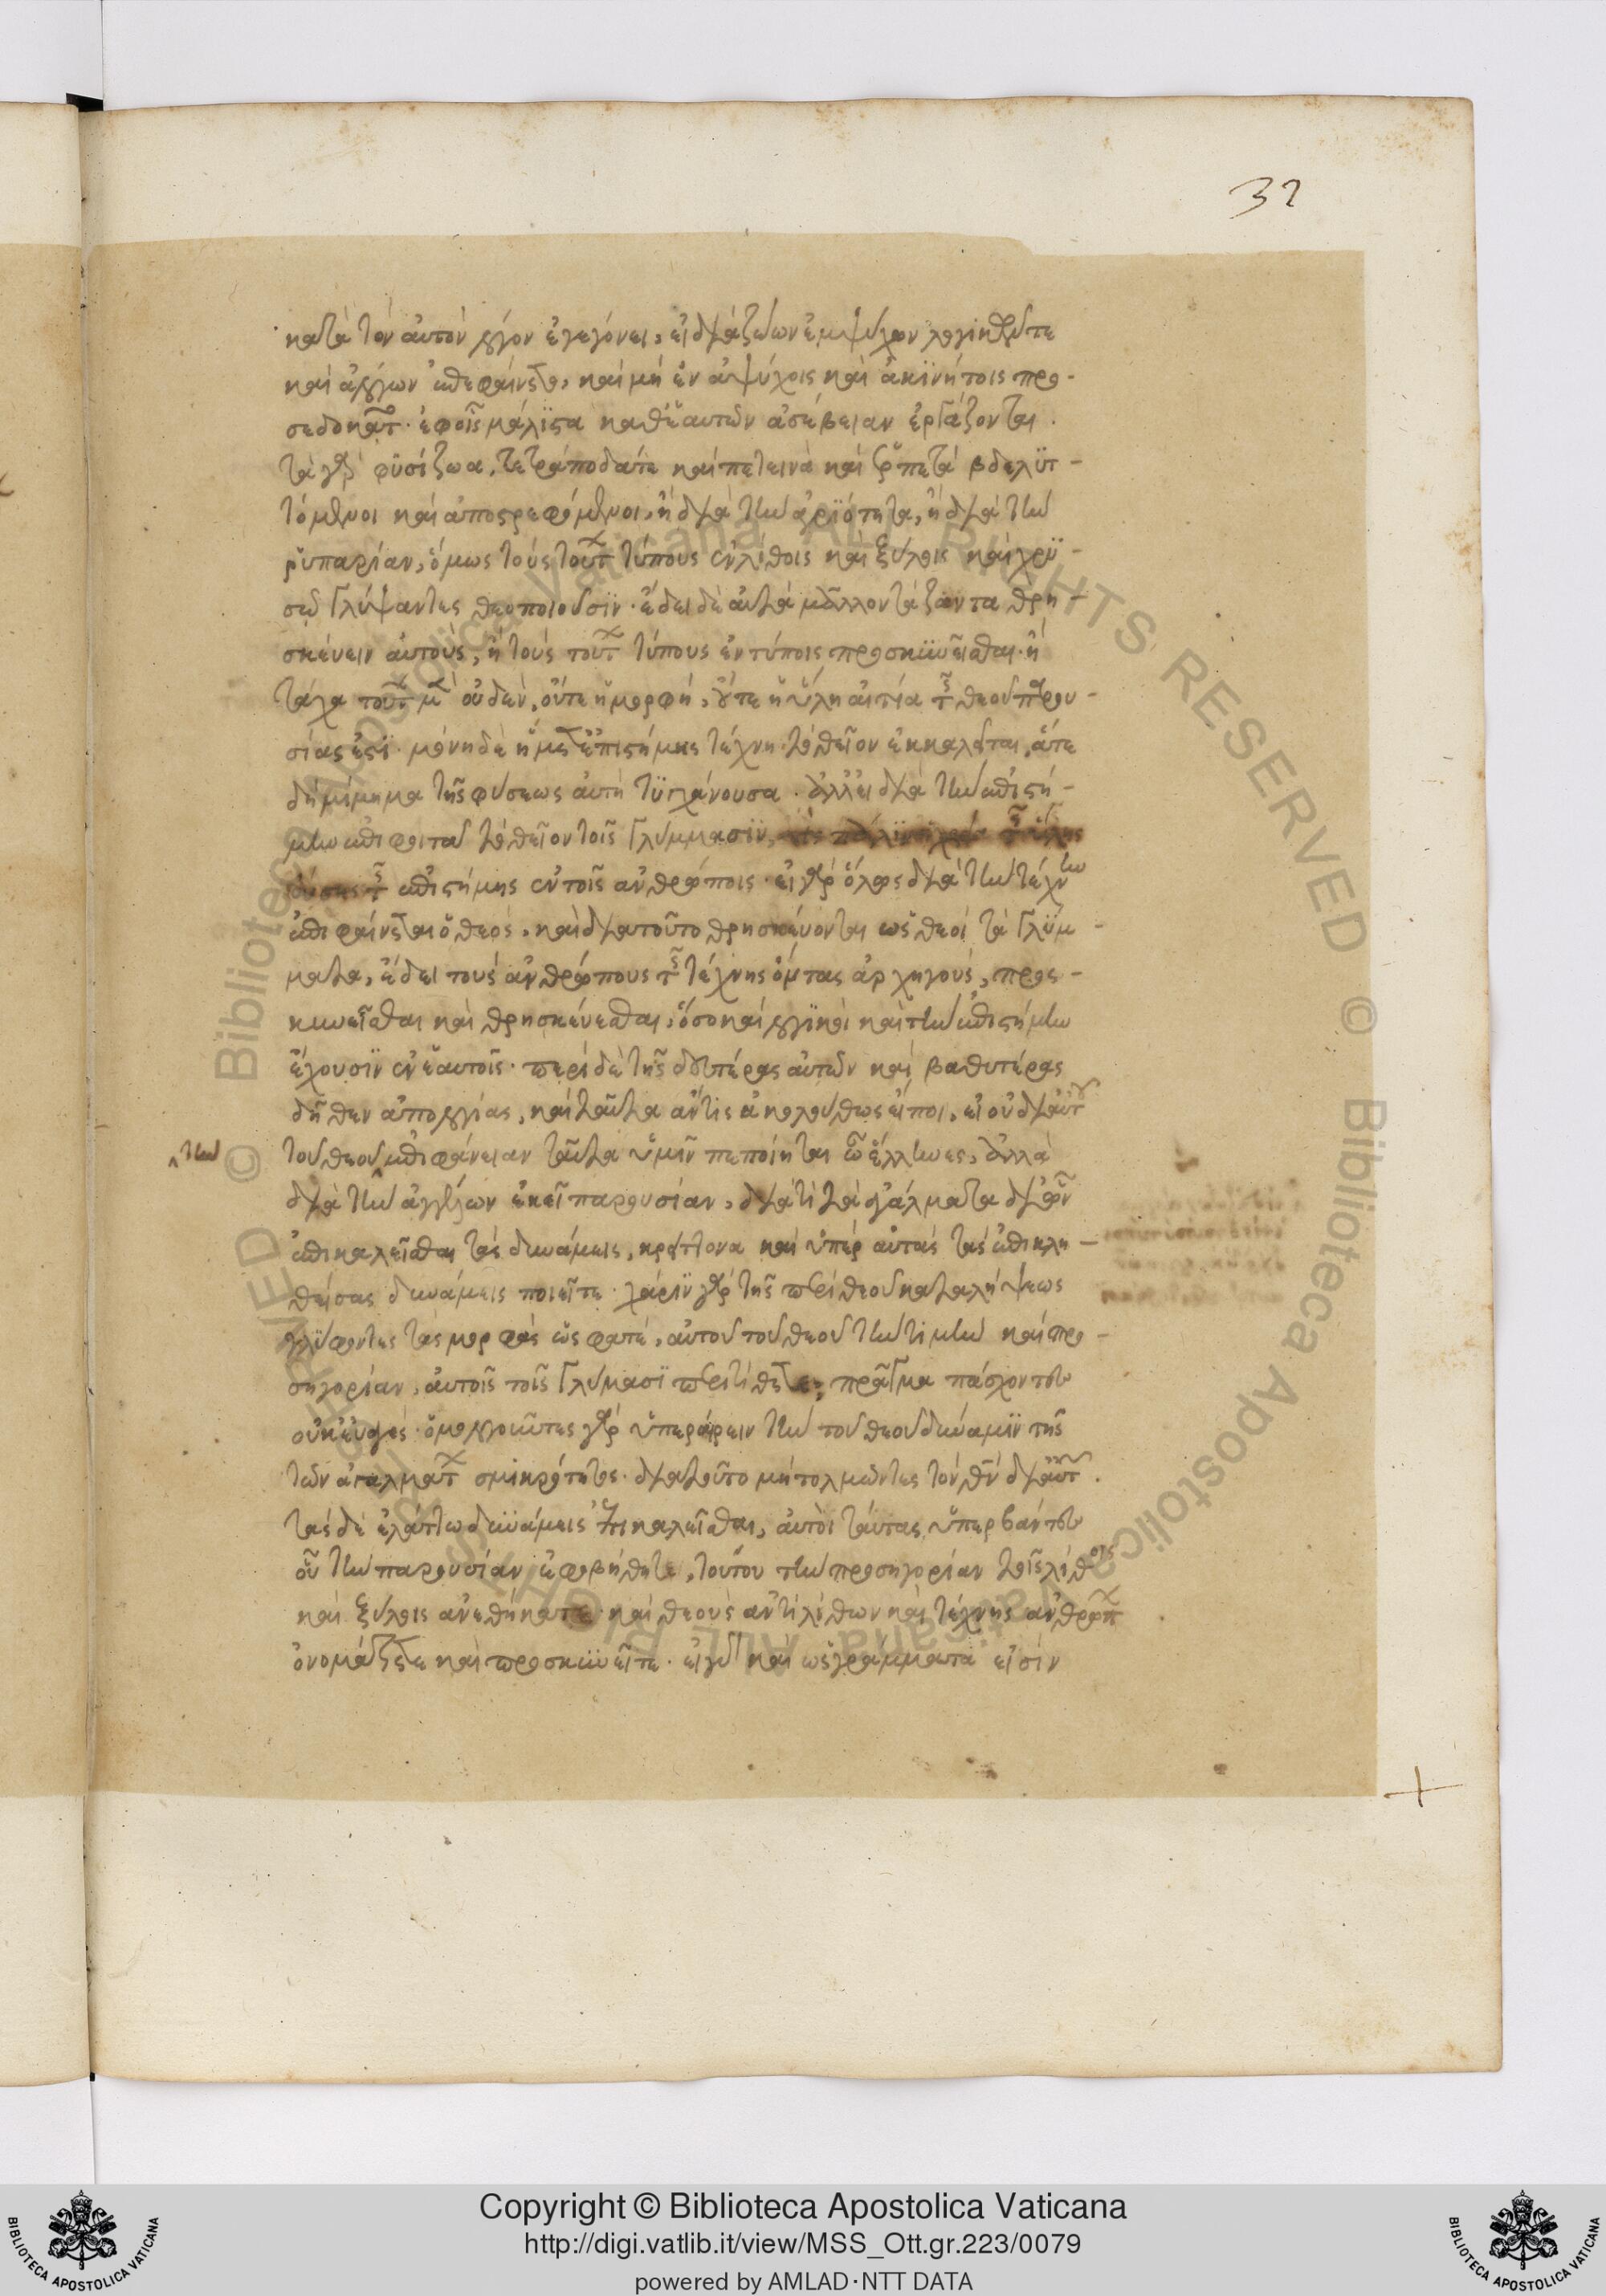 κατὰ τὸν αὐτὸν λόγον ἐγεγόνει, εἰ διὰ ζώων ἐμψύχων λογικῶν τε
καὶ ἀλόγων ἐπεφαίνετο, καὶ μὴ ἐν ἀψύχοις καὶ ἀκϊνήτοις προ-
σεδοκᾶτο· ἐφοῖς μάλϊστα καθ' ἑαυτῶν ἀσέβειαν ἐργάζονται.
τὰ γὰρ φύσϊ ζωα, τετράποδάτε καὶ πετεινὰ καὶ ἑρπετὰ βδελϋτ-
τόμενοι καὶ ἀποστρεφόμενοι, ἢ διὰ τὴν ἀγριότητα, ἢ διὰ τὴν
ῥυπαρίαν, ὅμως τοὺς τούτων τύπους ἐν λίθοις καὶ ξύλοις καὶ χρϋ-
σῶ γλύψαντες θεοποιοῦσϊν· ἔδει δὲ αὐτὰ μᾶλλον τὰ ζῶντα θρη-
σκεύειν αὐτοὺς, ἢ τοὺς τούτων τύπους ἐν τύποις προσκυνεῖσθαι· ἢ
τάχα τούτων μὲν οὐδὲν, οὔτε ἡ μορφὴ, οὔτε ἡ ὕλη αἰτία τῆς θεοῦ παρου-
σίας ἐστϊ· μόνη δὲ ἡ μετ' ἐπιστήμης τέχνη τὸ θεῖον ἐκκαλεῖται, ἅτε
δὴ μίμημα τῆς φύσεως αὐτὴ τϋγχάνουσα· ἀλλ' εἰ διὰ τὴν ἐπιστή-
μην ἐπιφοιτᾶ τὸ θεῖον τοῖς γλύμμασϊν, τίς πάλϊν χρεία τῆς ὕλης
οὔσης τῆς ἐπιστήμης ἐν τοῖς ἀνθρώποις· εἰ γὰρ ὅλως διὰ τὴν τέχνην
ἐπιφαίνεται ὁ θεός, καὶ διατοῦτο θρησκεύονται ὡς θεοὶ τὰ γλύμ-
ματα, ἔδει τοὺς ἀνθρώπους τῆς τέχνης ὄντας ἀρχηγοὺς, προς-
κυνεῖσθαι καὶ θρησκεύεσθαι, ὅσο καὶ λογϊκοὶ καὶ τὴν ἐπιστήμην
ἔχουσϊν ἐν ἑαυτοῖς· περὶ δὲ τῆς δευτέρας αὐτῶν καὶ βαθυτέρας
δῆθεν ἀπολογίας, καὶ ταῦτα ἄν τις ἀκολούθως εἴποι, εἰ οὐ διὰ αὐτοῦ
τοῦ θεοῦ ἐπιφάνειαν ταῦτα ὑμῖν πεποίηται ὦ ἕλληνες, ἀλλὰ
τὴν
διὰ τὴν ἀγγέλων ἐκεῖ παρουσίαν, διὰ τί τὰ ἀγάλματα δι' ὧν
ἐπικαλεῖσθαι τὰς δυνάμεις, κρείττονα καὶ ὑπὲρ αὐτὰς τὰς ἐπικλη-
θείσας δυνάμεις ποιεῖτε· χάρϊν γὰρ τῆς περὶ θεοῦ καταλήψεως
γλϋφοντες τὰς μορφὰς ὥς φατε, αὐτοῦ τοῦ θεοῦ τὴν τιμὴν καὶ προ-
σηγορίαν, αὐτοῖς τοῖς γλύμασϊ περιτίθετε, πρᾶγμα πάσχοντες
οὐκ εὐαγές· ὁμολογοῦντες γὰρ ὑπεραίρειν τὴν τοῦ θεοῦ δύναμϊν τῆς
τῶν ἀγαλμάτων σμικρότητος· διατοῦτο μὴ τολμῶντες τὸν θν δι' αὐτῶν.
τὰς δὲ ἐλάττω δϋνάμεις ἐπικαλεῖσθαι, αὐτοὶ ταύτας ὑπερβάντες
οὗ τὴν παρουσίαν ἐφοβήθητε, τούτου τὴν προσηγορίαν τοῖς λίθοις
καὶ ξύλοις ἀνεθήκατε· καὶ θεοὺς ἀντὶ λίθων καὶ τέχνης ἀνθρώπων
ὀνομάζετε καὶ προσκυνεῖτε· εἰ γὰρ καὶ ὡς γράμματα εἰσὶν
32
Copyright © Biblioteca Apostolica Vaticana
http://digi.vatlib.it/view/MSS_Ott.gr.223/0079
powered by AMLAD·NTT DATA
BIBLIOTECA APOSTOLICA VATICANA
BIBLIOTECA APOSTOLICA VATICANA